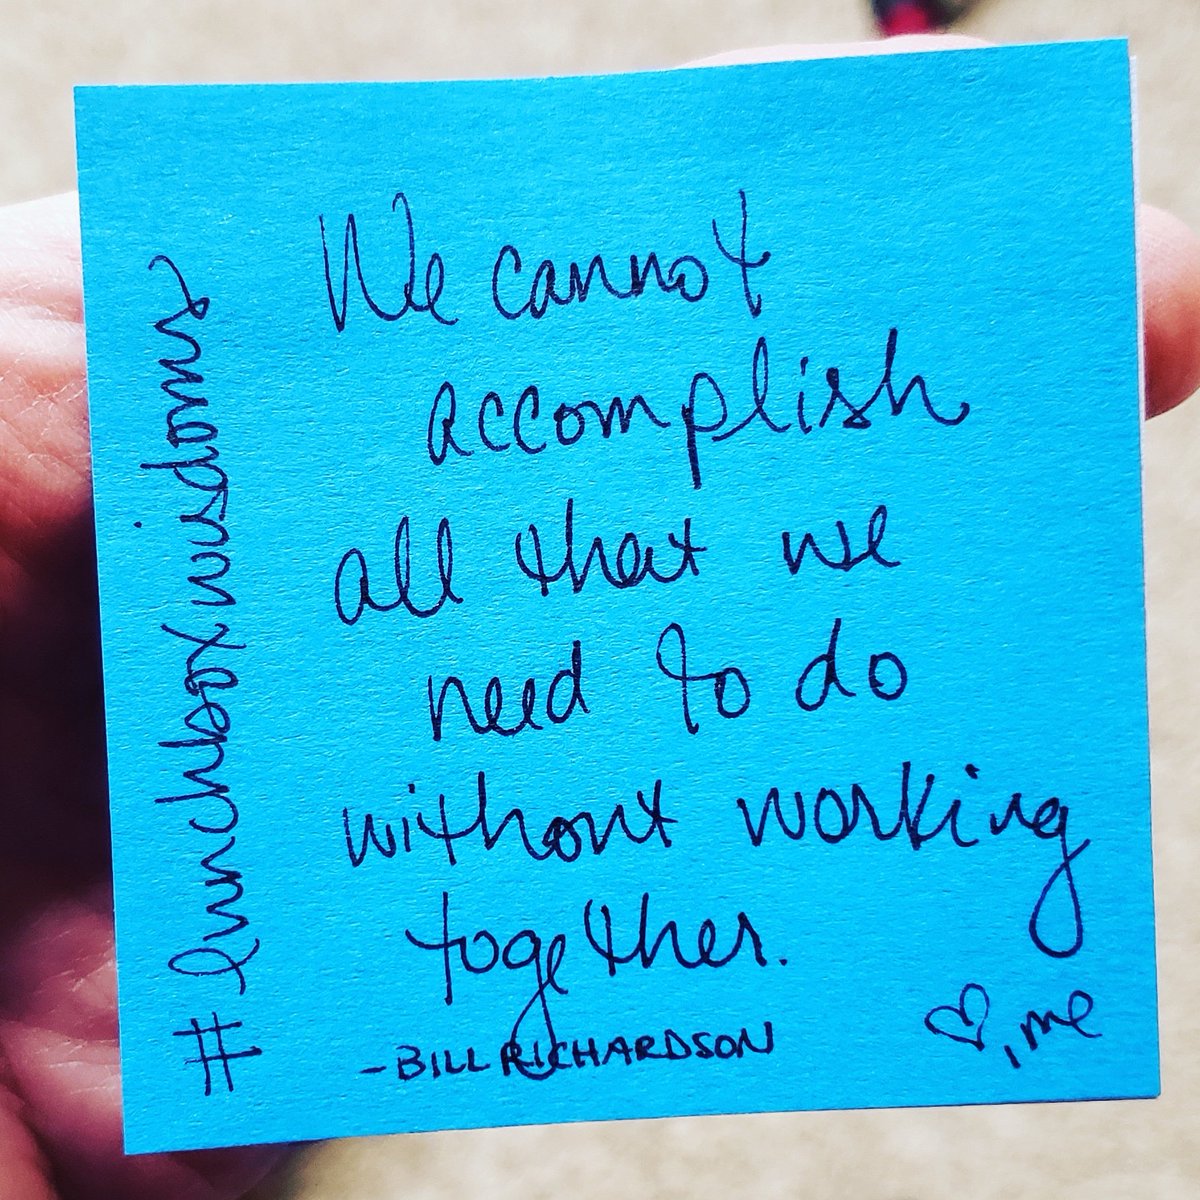 We cannot
accomplish
all that we
need to do
without working
together.
-BILL RICHARDSON
♡, me
#lunchboxwisdoms